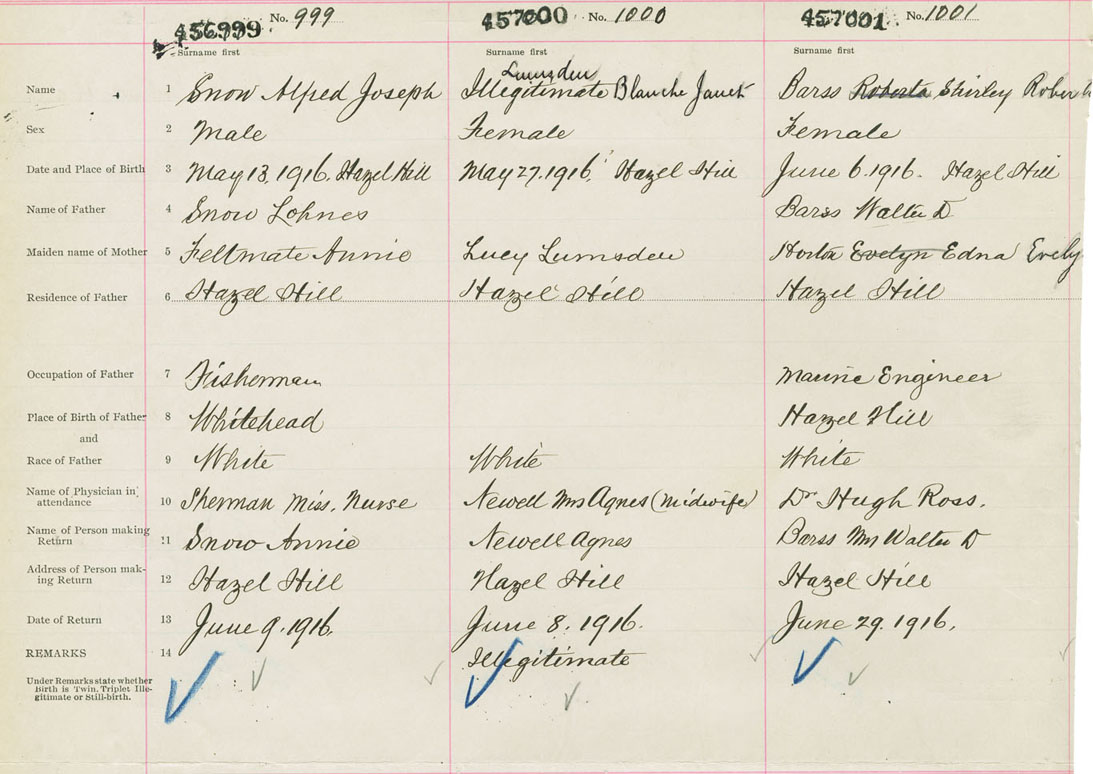 456999 No. 999 457000 No. 1000 457001 No. 1001
Surname first Surname first Surname first
Lumsden
Name 1 Snow Alfred Joseph Illegitimate Blanche Janet Barss Roberta Shirley
Sex 2 Male Female Female
Date and Place of Birth 3 May 13, 1916. Hazel Hill May 27, 1916, Hazel Hill June 6. 1916. Hazel Hill
Name of Father 4 Snow Lohnes Barss Walter D
Maiden name of Mother 5 Feltmate Annie Lucy Lumsden Horton Evelyn Edna Evely
Residence of Father 6 Hazel Hill Hazel Hill Hazel Hill
Occupation of Father 7 Fisherman Marine Engineer
Place of Birth of Father 8 Whitehead Hazel Hill
and
Race of Father 9 White White White
Name of Physician in attendance 10 Sherman Miss. Nurse Newell Mrs Agnes (Midwife) Dr Hugh Ross.
Name of Person making Return 11 Snow Annie Newell Agnes Barss Mrs Walter D
Address of Person mak-ing Return 12 Hazel Hill Hazel Hill Hazel Hill
Date of Return 13 June 9. 1916. June 8. 1916. June 29. 1916.
REMARKS 14 Illegitimate
Under Remarks state whether
Birth is Twin, Triplet Ille-
gitimate or Still-birth.